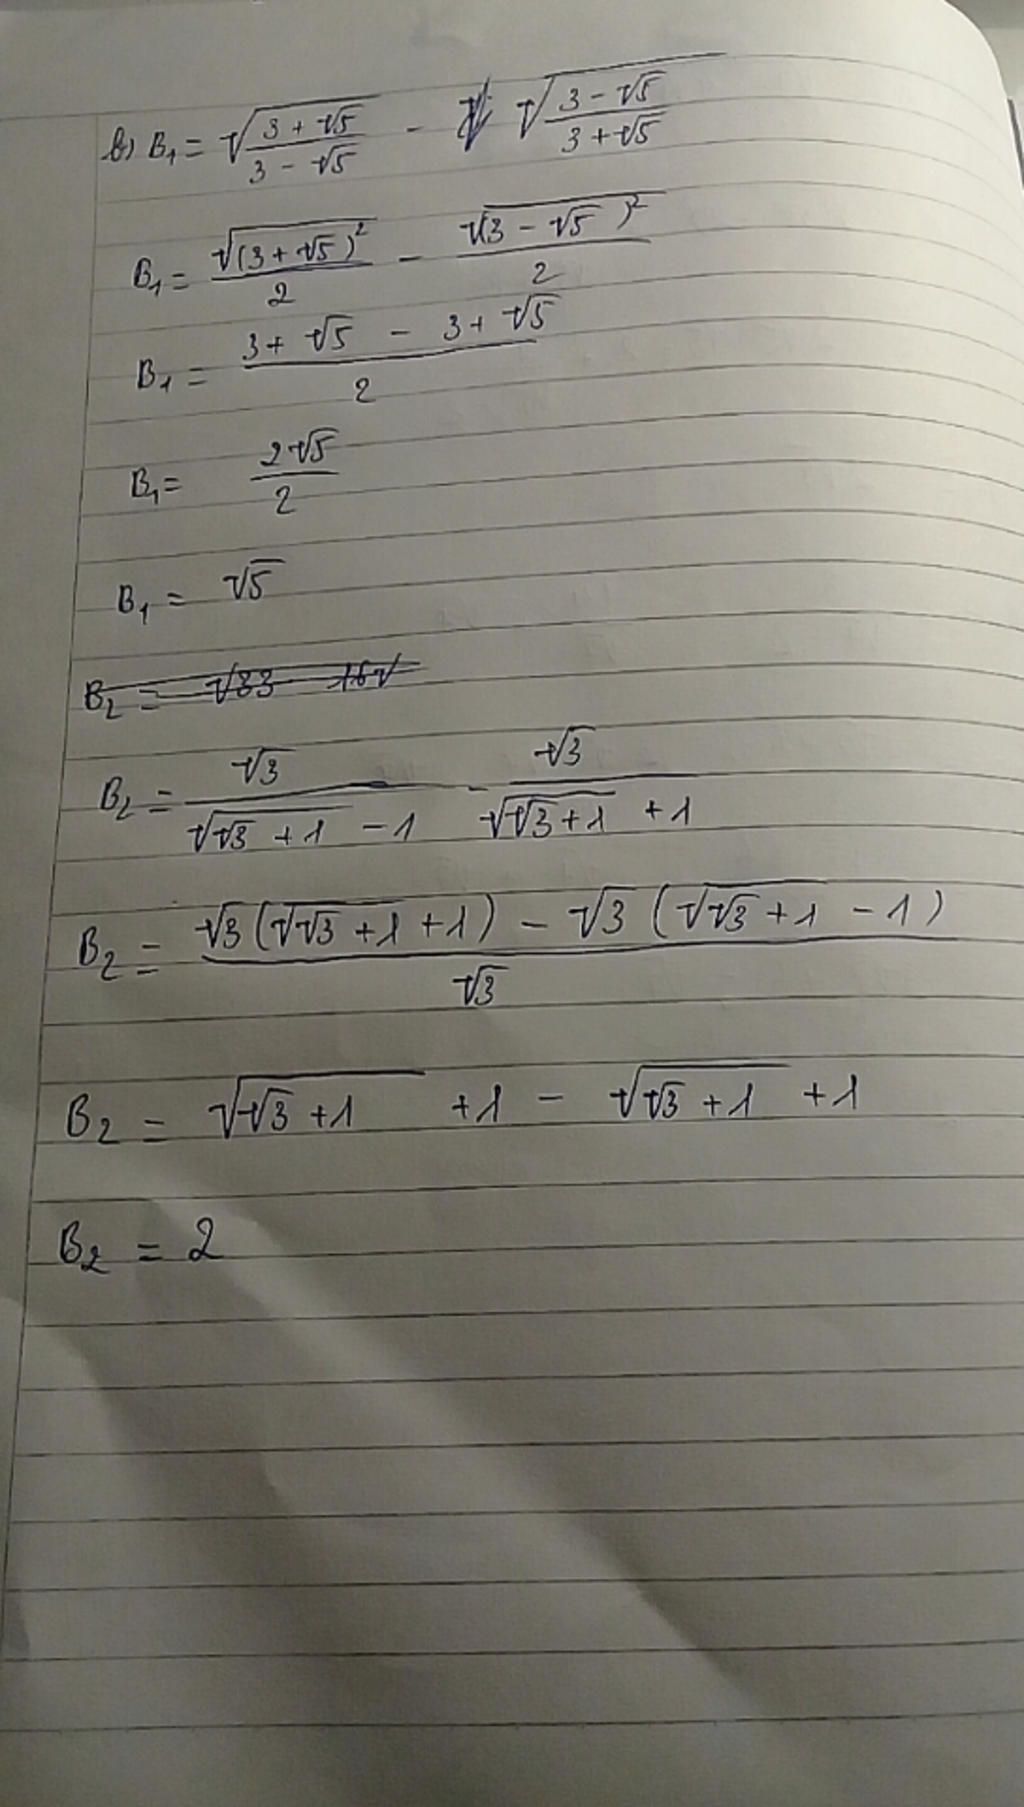 b) B₁ = √((3 + √5)/(3 - √5)) - √((3 - √5)/(3 + √5))
B₁ = √((3 + √5)²)/2 - √((3 - √5)²)/2
B₁ = (3 + √5 - 3 + √5)/2
B₁ = 2√5/2
B₁ = √5
B₂ = √33 - 16√
B₂ = √3/(√(√3 + 1) - 1) - √3/(√(√3 + 1) + 1)
B₂ = (√3(√(√3 + 1) + 1) - √3(√(√3 + 1) - 1))/√3
B₂ = √(√3 + 1) + 1 - √(√3 + 1) + 1
B₂ = 2